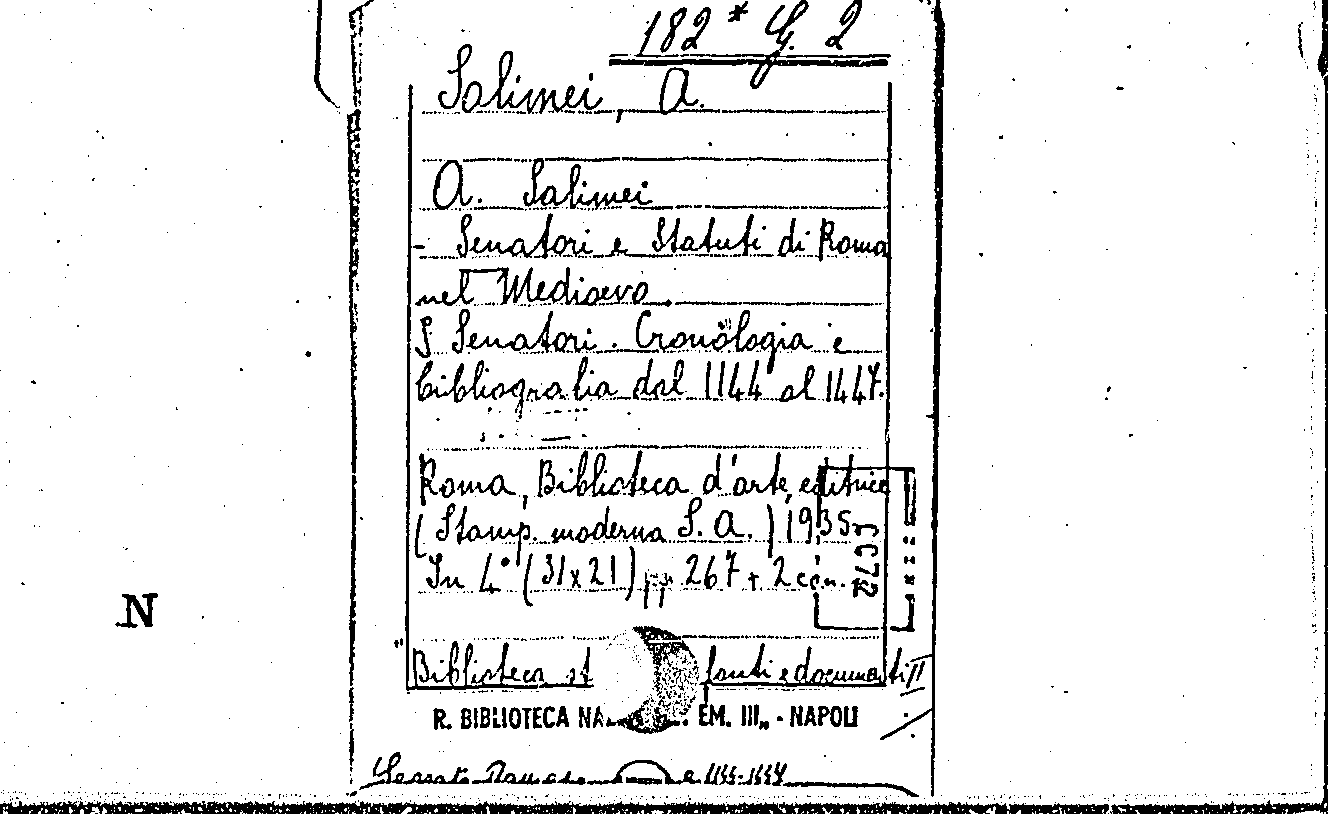 182* G. 2
Salimei, A.
A. Salimei
- Senatori e Statuti di Roma
nel Medioevo.
I Senatori. Cronologia e
bibliografia dal 1144 al 1447.
Roma, Biblioteca d'arte, editrice
(Stamp. moderna S. A.) 1935
In 4° (31x21), pp 267 + 2 cén.
N
"Biblioteca st fonti e documenti II
R. BIBLIOTECA NA EM. III„ - NAPOLI
Senato Romano 1144-1447